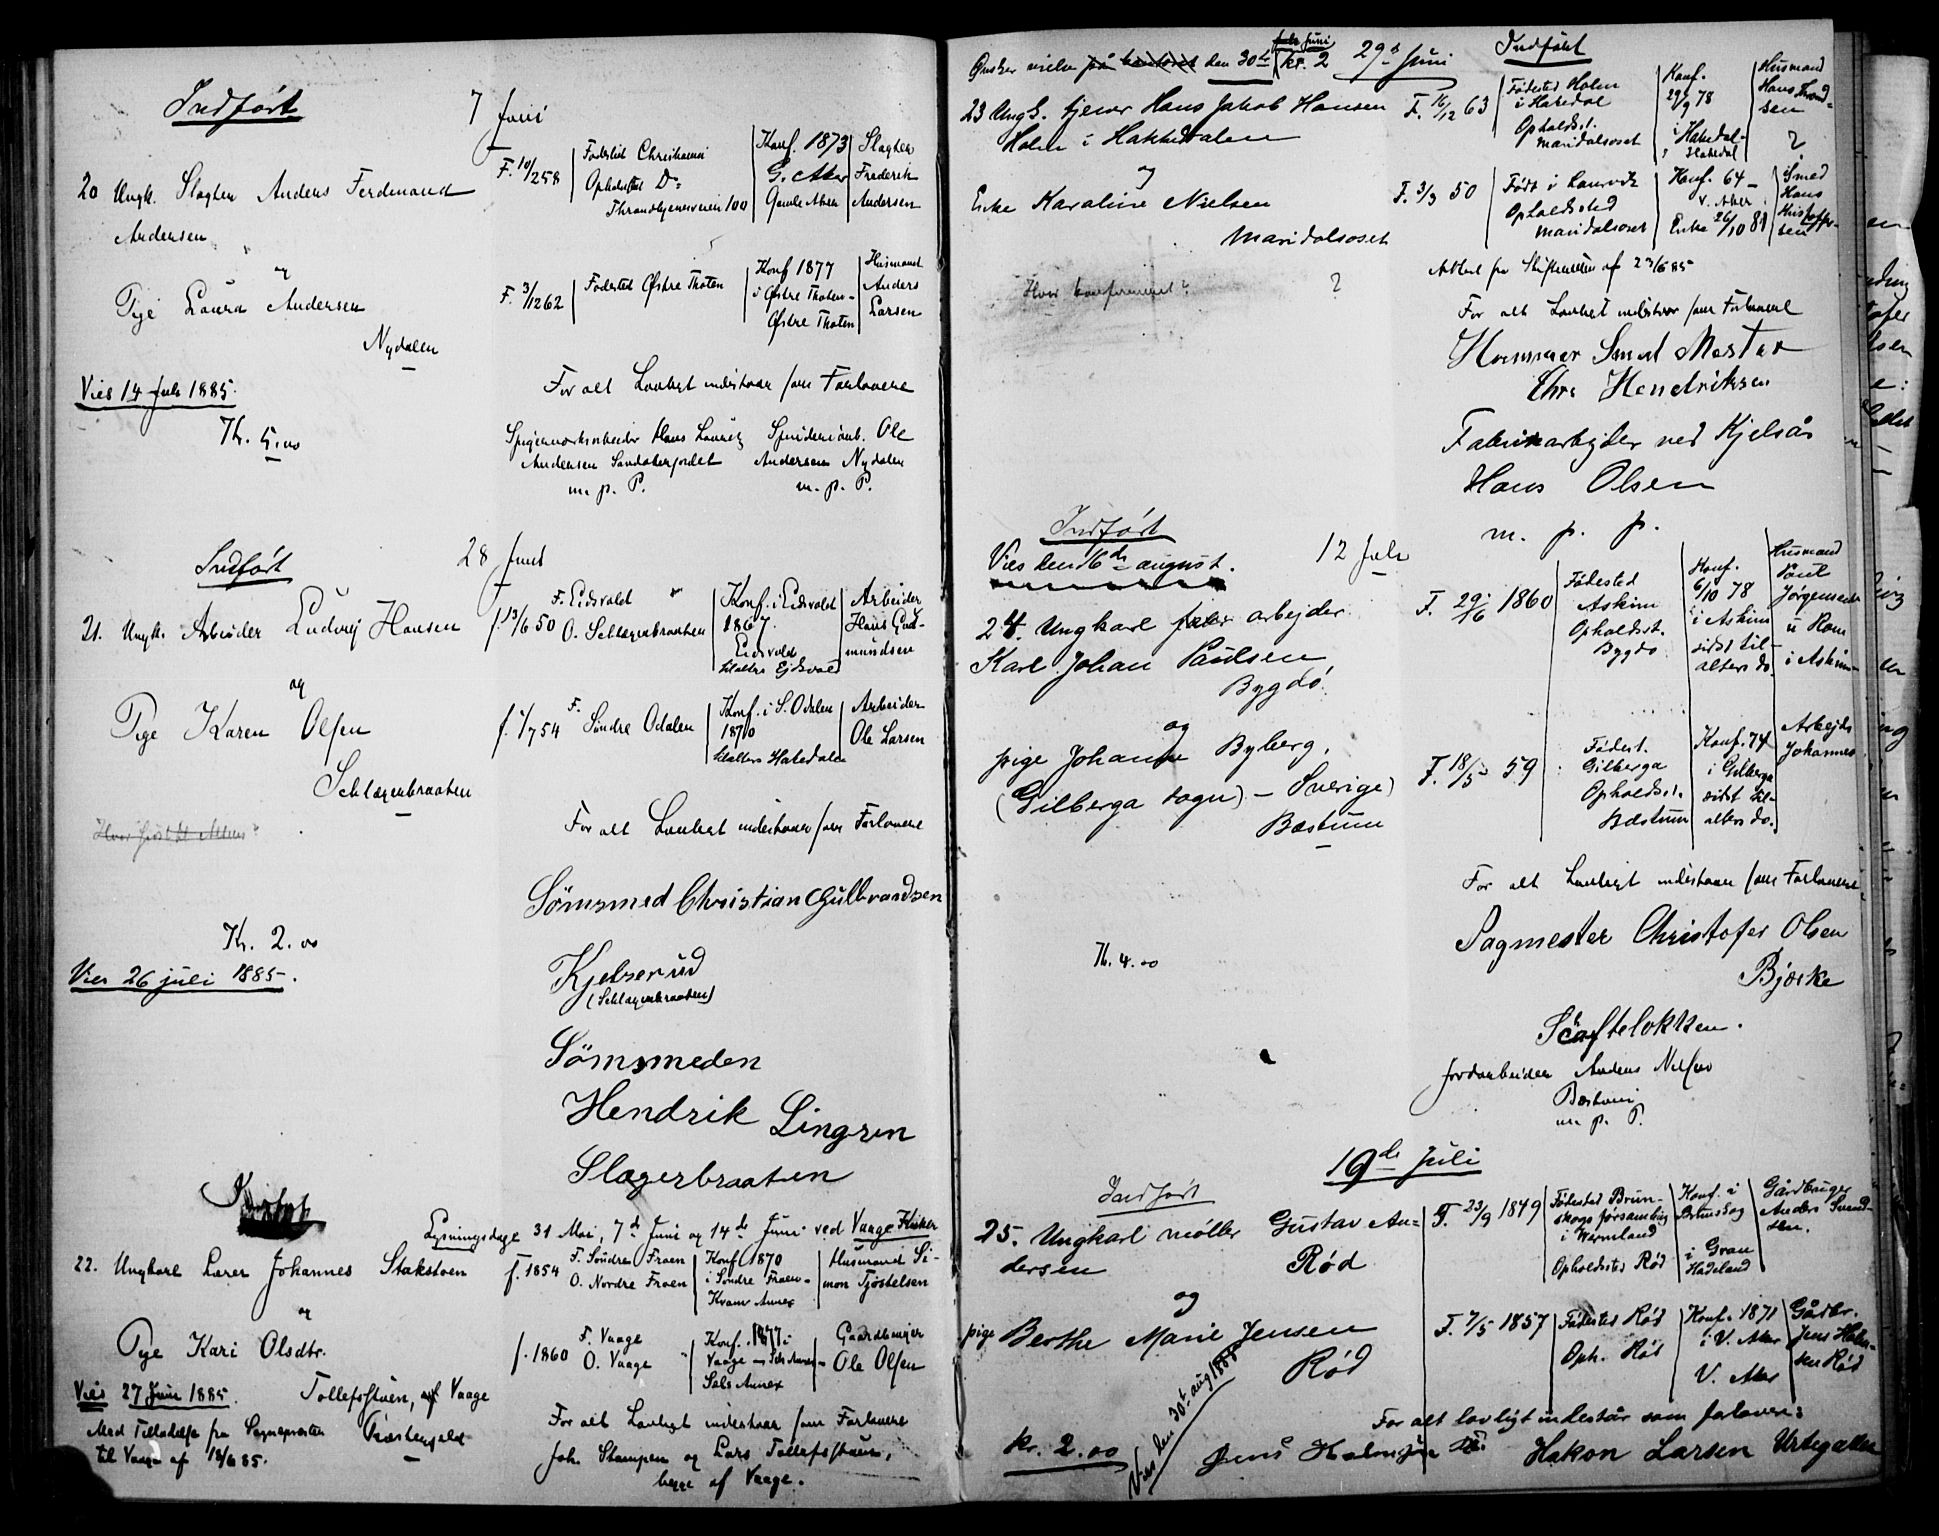 Indført
7 Juni
20 Ungk. Slagter Anders Ferdinand
Andersen
F. 10/2 58
Fodested Christiania
Opholdsted Do
Throndhjemsveien 100
Konf. 1873
G. Aker
Gamle Aker
Slagter
Frederik
Andersen
og
Pige Laura Andersen
Nydalen
F. 3/12 62
Fodested Østre Thoten
Konf 1877
i Østre Thoten -
Østre Thoten
Husmand
Anders
Larsen
Vies 14 Juli 1885.
Kr. 5.00
For alt Lovligt indestaar som Forlovere
Spigerverksarbeider Hans Lauritz
Andersen Sandakerjordet
m. p. P.
Spinderiarb. Ole
Andersen Nydalen
m. p. P.
Indført
28 Juni
21. Ungk. Arbeider Ludvig Hansen
f. 13/6 50
F. Eidsvold
O. Schlagenbraaten
Konf. i Eidsvold
1867.
Eidsvold
tilalters Ejdsvold
Arbeider
Hans Gud-
mundsen
og
Pige Karen Olsen
Schlagenbraaten
f. 1/7 54
F. Søndre Odalen
Konf. i S. Odalen
1870
tilalters Hakedalen
Arbeider
Ole Larsen
For alt Lovligt indestaar som Forlovere
Sömsmed Christian Gulbrandsen
Kjelserud
(Schlagenbraaten)
Kr. 2.00
Vies 26 juli 1885.
Sömsmeden
Hendrik Lingren
Slagerbraaten
Lysningsdage 31 Mai, 7de Juni og 14de Juni ved Vaage Kirke
22. Ungkarl Lærer Johannes Stakstoen
f. 1854
F. Søndre Froen
O. Nordre Froen
Konf 1870
i Søndre Froen -
Kvam Annex
Husmand Si-
mon Tjøstelsen
og
Pige Kari Olsdtr.
f. 1860
F. Vaage
O. Vaage
Konf. 1877 i
Vaage
Sels Annex
Gaardbruger
Ole Olsen
Vies 27 Juni 1885.
Tollefsstuen, af Vaage
Præstegjeld
Med Tilladelse fra Sognepresten
til Vaage af 12/6 85.
For alt Lovligt indestaar som Forlovere
Joh. Stampen og Lars Tollefsstuen,
begge af Vaage.
Ønsker vielse på kontoret den 30te
Juni
kr. 2
29de Juni
Indført
23 Ungk. tjener Hans Jakob Hansen
Holm i Hakkedalen
F. 16/12 63
Fødested Holm
i Hakedal
Opholdst.
Maridalsoset
Konf.
29/9 78
i Hakedal -
Hakedal
Husmand
Hans Thrond-
sen
?
og
Enke Karoline Nielsen
Maridalsoset
F. 3/3 50
Født i Laurvik
Opholdssted
Maridalsoset
Konf. 64 -
V. Aker
Enke 26/10 81
Smed
Hans
Kristoffer-
sen
Hvor konfirmeret?
?
Attest fra Skifteretten af 23/6 85
For alt Lovligt indestaar som Forlovere
Hammer Smed Mester
Chr. Hendriksen
Fabrikarbejder ved Kjelsås
Hans Olsen
m. p. p.
Indført
Vies den 16de august.
12 Juli
24. Ungkarl arbejder
Karl Johan Paulsen
Bygdö.
F. 29/6 1860
Födested
Askim
Opholdsst.
Bygdö
Konf.
6/10 78
i Askim
sidst til-
alters do.
Husmand
Paul
Jørgensen
u Rom
i Askim
og
pige Johanne Byberg.
(Gilberga sogn) - Sverige)
Bæstum
F. 18/5 59
Födest.
Gilberga
Opholdsst.
Bæstum
Konf. 74
i Gilberga
sidst til-
alters do.
Arbejds
Johannes
For alt Lovligt indestaar som Forlovere
Sagmester Christofer Olsen
Bjørke
Kr. 4.00
Schafteløkken.
Jordarbeider Anders Nilsen
Bæstum
m. p. P.
19de Juli
Indført
25. Ungkarl møller Gustav An-
dersen Rød
F. 23/9 1849
Fødested Brun-
skogs församling
i Wermland
Opholdssted Rød
Konf. i
Brunskog
i Gran
Hadeland
Gårdbruger
Anders Svend-
sen.
og
pige Berthe Marie Jensen
Rød
F. 7/5 1857
Födested Rød
Oph. Rød
Konf. 1871
i V. Aker
V. Aker
Gårdbr.
Jens Halvor-
sen Rød
Vies den 30te aug 1885
For alt lovligt indestår som forlovere:
kr. 2.00
Jens Halvorsen
Håkon Larsen